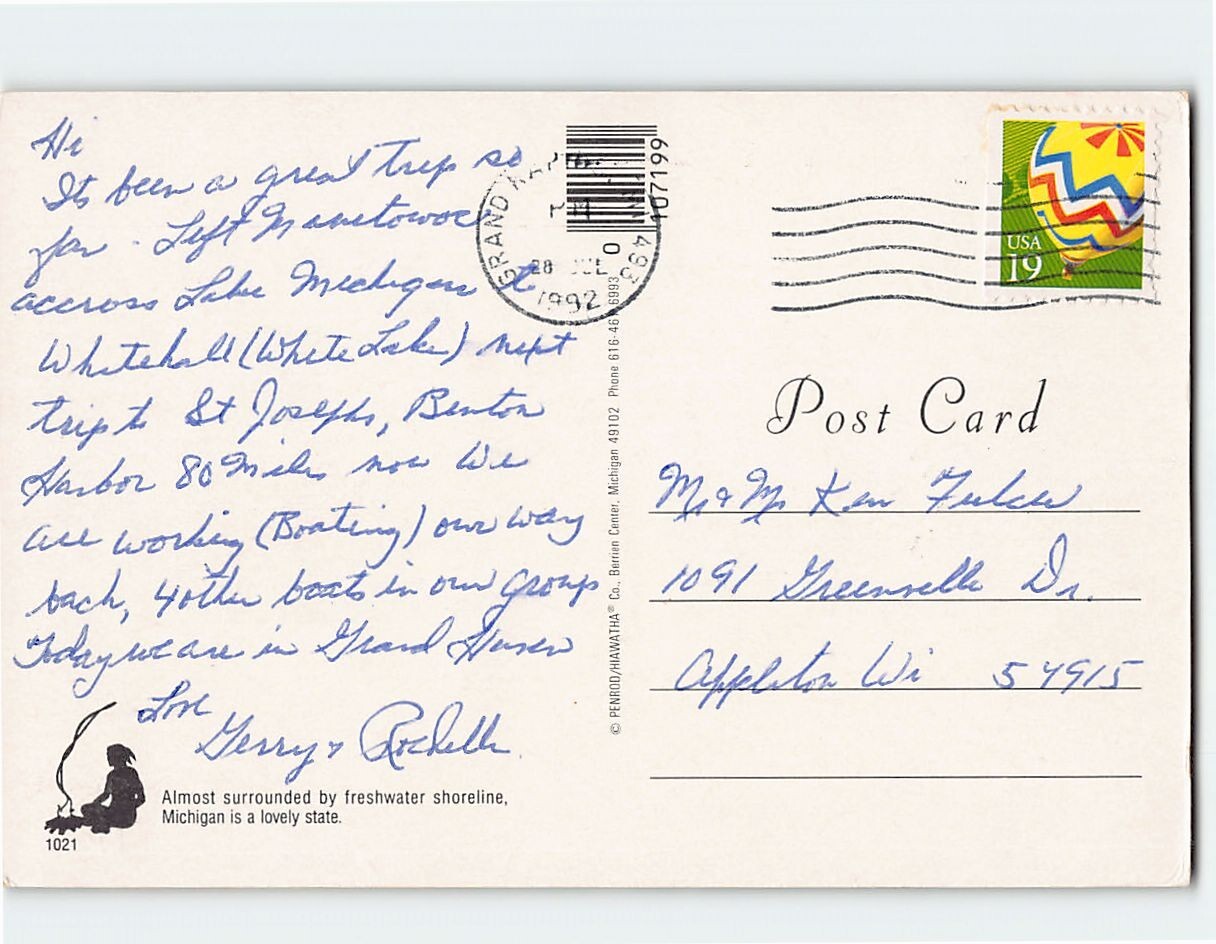 Hi
Its been a great trip so
far - Left Manitowoc
accross Lake Michigan to
Whitehall (White Lake) next
trip to St Josephs, Benton
Harbor 80 miles now We
are working (Boating) our way
back, 4 other boats in our group
Today we are in Grand Haven
Love
Gerry & Rochelle
Almost surrounded by freshwater shoreline,
Michigan is a lovely state.
1021
© PENROD/HIAWATHA® Co., Berrien Center, Michigan 49102 Phone 616-461-6993
0 107199
GRAND RAPIDS 493
PM
28 JUL
1992
USA
19
Post Card
Mr & Mrs Ken
1091 Greenville Dr.
Appleton Wi 54915